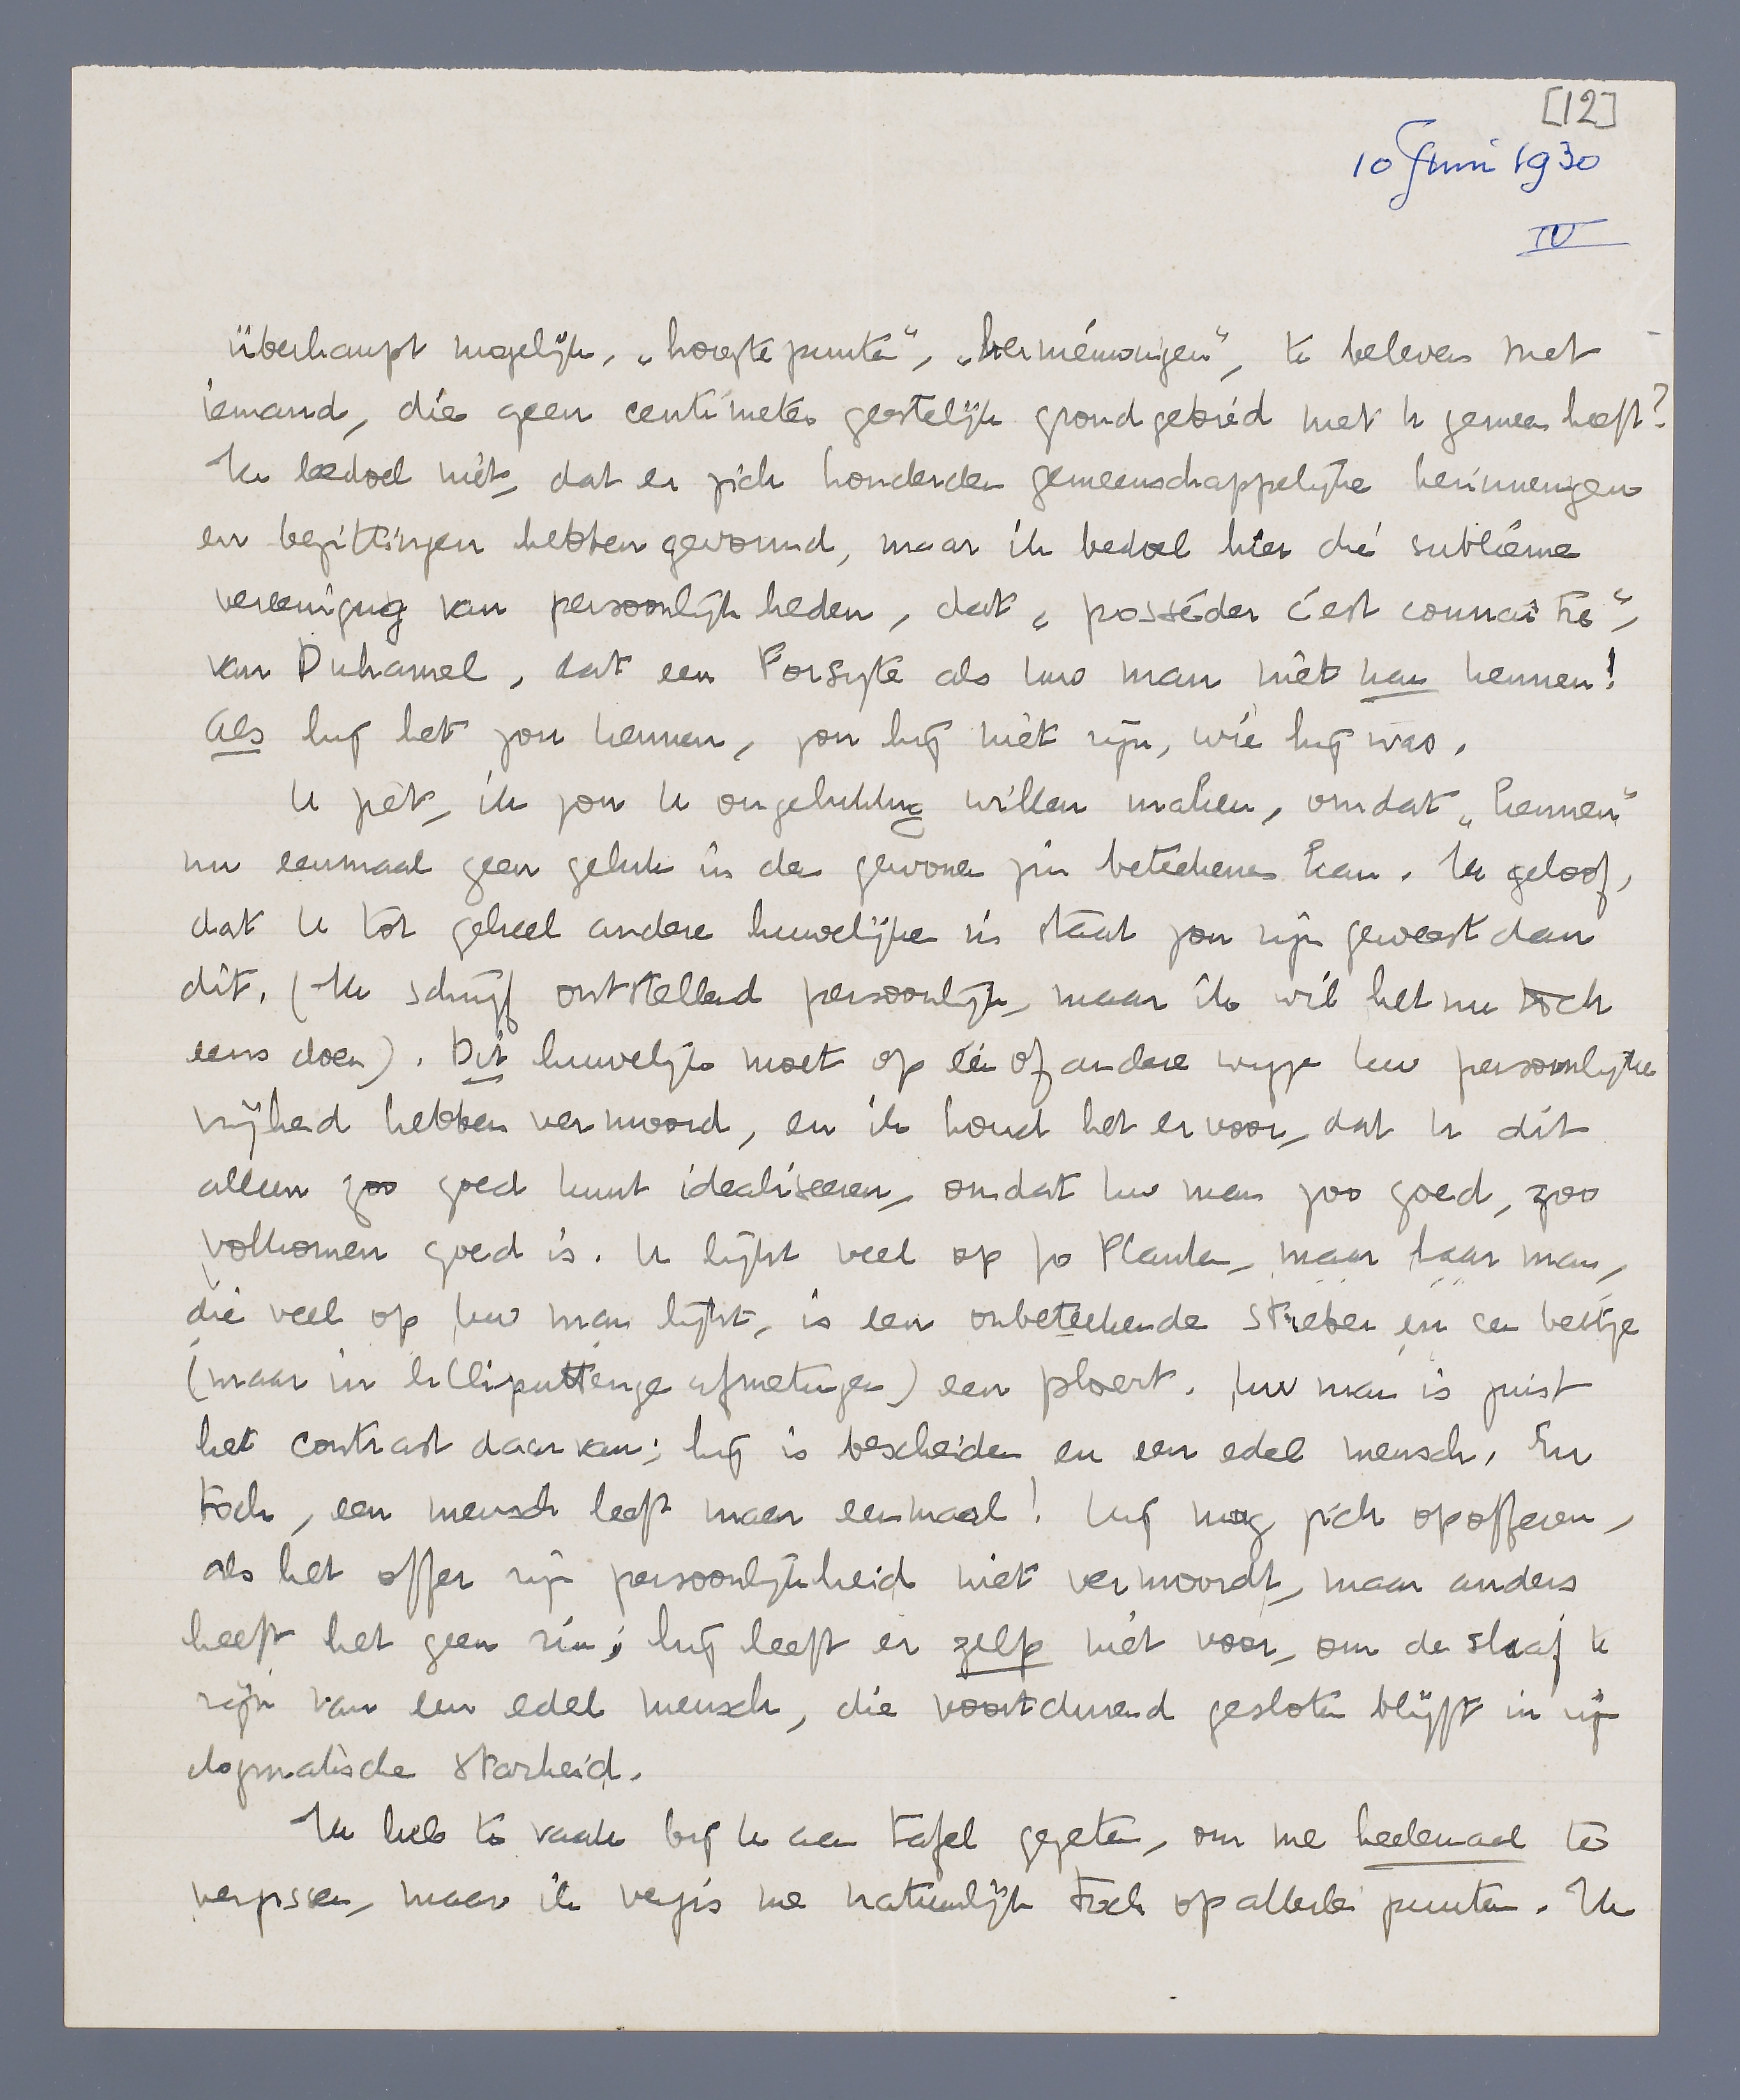 [12]
10 Juni 1930
IV
überhaupt mogelijk, „hoogtepunten”, „herinneringen”, te beleven met
iemand, die geen centimeter geestelijk grondgebied met U gemeen heeft?
Ik bedoel niet, dat er zich honderden gemeenschappelijke herinneringen
en bezittingen hebben gevormd, maar ik bedoel hier dié sublieme
vereeniging van persoonlijkheden, dat „posséder c'est connaître”,
van Duhamel, dat een Forsyte als Uw man niet kan kennen!
Als hij het zou kennen, zou hij niet zijn, wie hij was.
U ziet, ik zou U ongelukkig willen maken, omdat „kennen”
nu eenmaal geen geluk in den gewonen zin beteekenen kan. Ik geloof,
dat U tot geheel andere huwelijken in staat zou zijn geweest dan
dit. (Ik schrijf ontstellend persoonlijk, maar ik wil het nu toch
eens doen). Dit huwelijk moet op één of andere wijze Uw persoonlijke
vrijheid hebben vermoord, en ik houd het ervoor, dat U dit
alleen zoo goed kunt idealiseeren, omdat Uw man zoo goed, zoo
volkomen goed is. U lijkt veel op Jo Planten, maar haar man,
die veel op Uw man lijkt, is een onbeteekende streber en een beetje
(maar in lilliputtenge afmetingen) een ploert. Uw man is juist
het contrast daarvan; hij is bescheiden en een edel mensch. En
toch, een mensch leeft maar eenmaal! Hij mag zich opofferen,
als het offer zijn persoonlijkheid niet vermoordt, maar anders
heeft het geen zin; hij leeft er zelf niet voor, om de slaaf te
zijn van een edel mensch, die voortdurend gesloten blijft in zijn
dogmatische starheid.
Ik heb te vaak bij U aan tafel gezeten, om me heelemaal te
vergissen, maar ik vergis me natuurlijk toch op allerlei punten. Ik